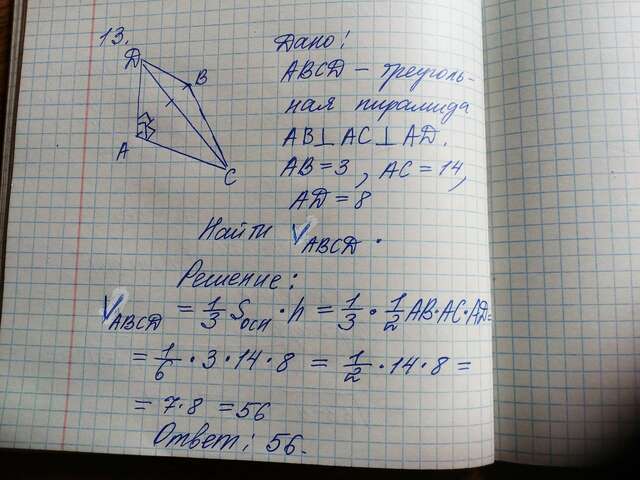 13.
D
B
A
C
Дано:
ABCD – треуголь-
ная пирамида
AB⊥AC⊥AD.
AB=3, AC=14,
AD=8
Найти V_ABCD.
Решение:
V_ABCD = 1/3 S_осн · h = 1/3 · 1/2 AB·AC·AD=
= 1/6 · 3 · 14 · 8 = 1/2 · 14 · 8 =
= 7·8 = 56
Ответ: 56.